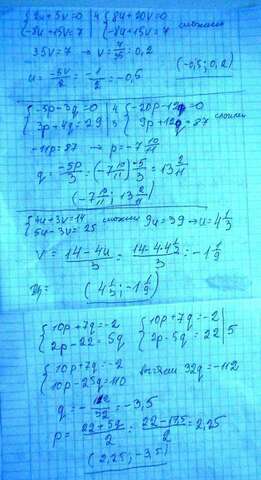 {2u+5v=0 | 4 {8u+20v=0
{-8u+15v=7 {-8u+15v=7 сложим
35v=7 → v=7/35=0,2
u=-5v/2=-1/2=-0,5 (-0,5; 0,2)
{-5p-3q=0 | 4 {-20p-12q=0
{3p-4q=29 | 3 {9p+12q=87 сложим
-11p=87 → p=-7 10/11
q=-5p/3=(-7 10/11)·-5/3=13 2/11
(-7 10/11; 13 2/11)
{4u+3v=14 сложим 9u=39 → u=4 1/3
{5u-3v=25
v=14-4u/3=14-4·4 1/3/3=-1 1/9
(4 1/3; -1 1/9)
{10p+7q=-2 {10p+7q=-2
{2p-22=5q {2p-5q=22 | 5
{10p+7q=-2
{10p-25q=110 вычтем 32q=-112
q=-112/32=-3,5
p=22+5q/2=22-17,5/2=2,25
(2,25; -3,5)